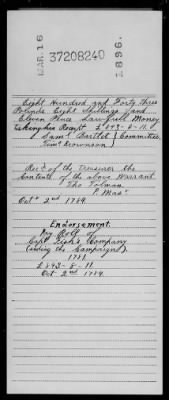 MAR. 16
1896.
37208240
Eight Hundred and Forty Three
Pounds Eight Shillings and
Eleven Pence Lawfull Money
Taking his Receipt £843-8-11.
Saml Bartlet } Committee
Timo Brownson
Recd of the Treasurer the
Contents of the above Warrant
Tho Tolman
P. Mast
Octr 2nd 1784.
Endorsement.
Pay Roll of
Capt Company
(during the Campaigne)
1781
£843-8-11.
Oct 2nd 1784.